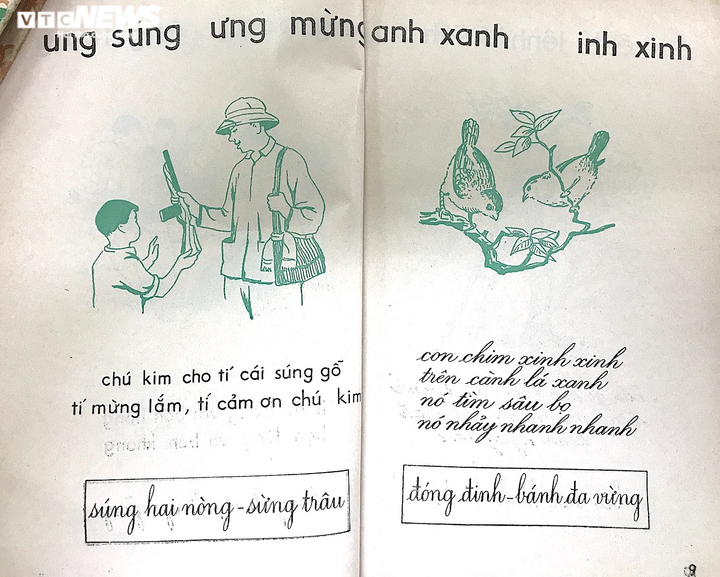 VTC NEWS
ung súng ưng mừng
chú kim cho tí cái súng gỗ
tí mừng lắm, tí cảm ơn chú kim
súng hai nòng - sừng trâu
anh xanh inh xinh
con chim xinh xinh
trên cành lá xanh
nó tìm sâu bọ
nó nhảy nhanh nhanh
đóng đinh - bánh đa vừng
9